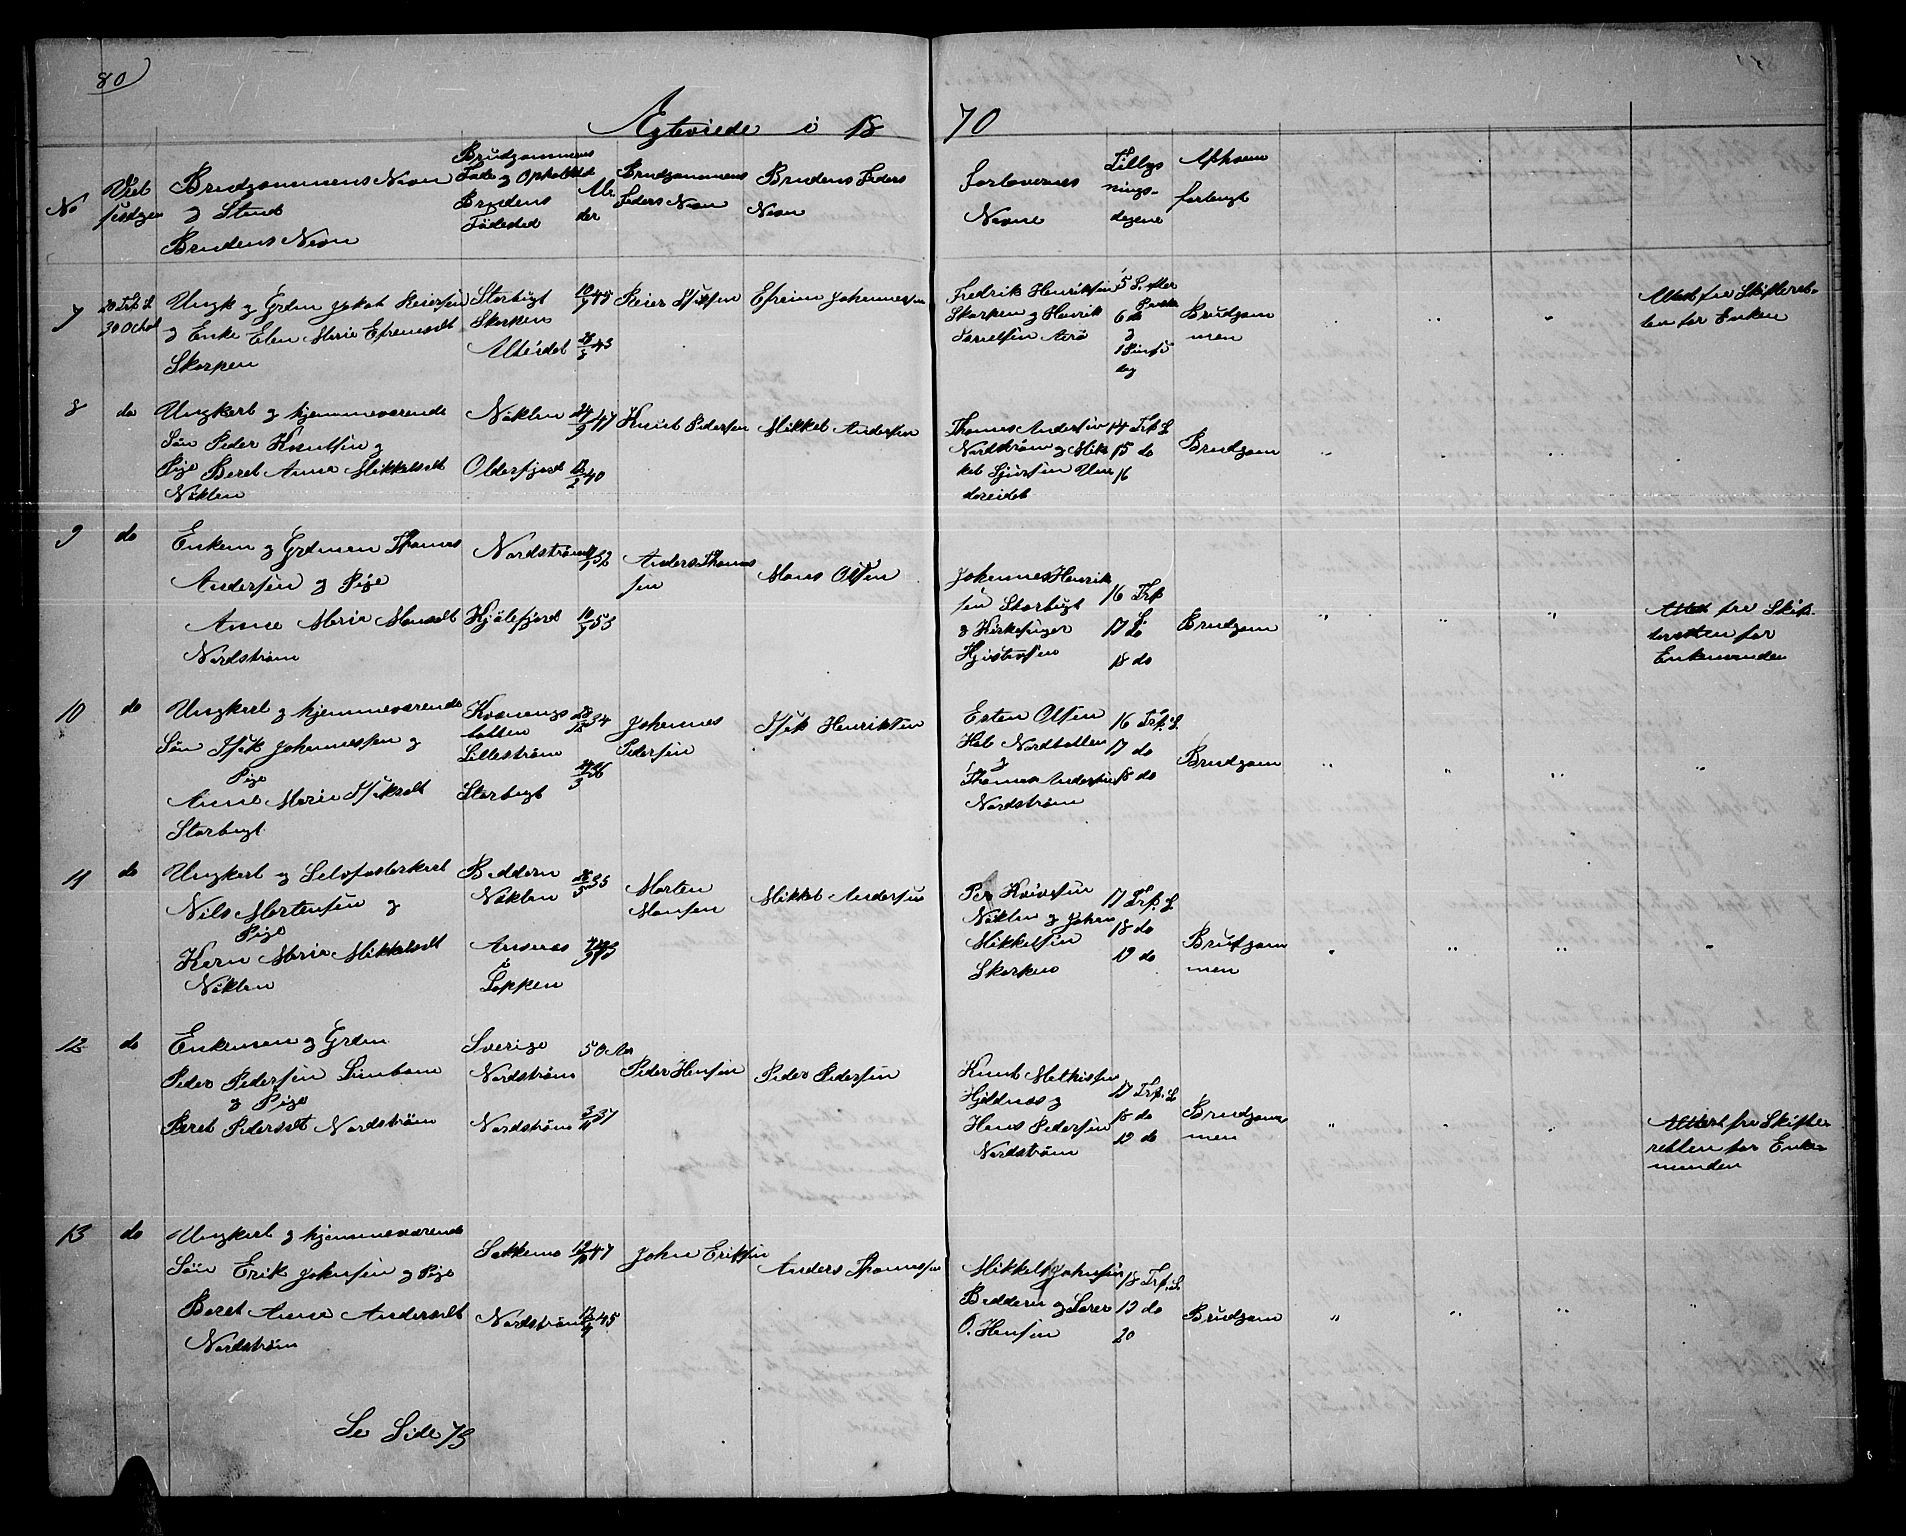 80
Egteviede i 18 70
No
Viel
Brudgommens Navn
og Stand
Brudens Navn
Brudgommens
Føde og Opholdsted
Brudens
Fødested
Al-
der
Brudgommens
Faders Navn
Brudens Faders
Navn
Forlovernes
Navne
Tillys
nings-
dagene
Af hvem
forlangt
7
20 Trf. S.
30 Octob
Ungk og Grdm Jakob Reiersen
og Enke Elen Marie Efremsdt
Skorpen
Storbugt
Skorpen
Alteidet
45
43
Reier Isaksen
Efreim Johannessen
Fredrik Henriksen
Skorpen og Henrik
5 S. efter
Paaske
6 do
og
1 Pinse
dag
Brudgom
men
"
"
Attest fra Skifteret-
ten for Enken
8
do
Ungkarl og hjemmeværende
Søn Peder Knutsen og
Pige Beret Anna Mikkelsdt
Nøklen
Nøklen
24/9 47
Olderfjord
40
Knut Pedersen
Mikkel Andersen
Thomas Andersen
Nordstrøm og Mik
kel Sjursen Un
dereidet
14 Trf. S
15 do
16
Brudgom
"
"
"
"
9
do
Enkem og Grdmen Thomas
Andersen og Pige
Anne Marie Monsdt
Nordstrøm
Nordstrøm
Kjølefjord
53
Anders Thomas
sen
Mons Olsen
Johannes Henrik
sen Storbugt
og Kirkesanger
16 Trf
S
17 do
18 do
Brudgom
"
"
"
Attest fra Skif-
teretten for
Enkemanden
10
do
Ungkarl og hjemmeværende
Søn Isak Johannessen og
Pige
Anne Marie Isaksdt
Storbugt
Kvænangs
botten
Lillestrøm
34
Storbugt
36
Johannes
Pedersen
Isak Henriksen
Esten Olsen
Hab Nordbotten
og
Thomas Andersen
Nordstrøm
16 Trf. S.
17 do
18 do
Brudgom
"
"
"
"
11
do
Ungkarl og Selvfosterkarl
Nils Mortensen og
Pige
Karn Marie Mikkelsdt
Nøklen
Baddern
Nøklen
28/5 35
Loppen
Morten
Monsen
Mikkel Andersen
Per
Nøklen og Johan
Mikkelsen
Skorpen
17 Trf. S
18 do
19 do
Brudgom
men
"
"
"
"
12
do
Enkeman og Grdm
Peder Pedersen
og Pige
Beret Pedersdt Nordstrøm
Sverige
Nordstrøm
50 Aar
Nordstrøm
37
Peder Hansen
Peder Pedersen
Knut Mathissen
og
Hans Pedersen
Nordstrøm
17 Trf. S
18 do
19 do
Brudgom
men
"
"
"
Attest fra Skifte-
retten for Enke-
manden
13
do
Ungkarl og hjemmeværende
Søn Erik Johnsen og Pige
Beret Anne Andersdt
Nordstrøm
47
Nordstrøm
45
John Eriksen
Anders Thomassen
Mikkel Johnsen
Baddern og Lars
O. Hansen
18 Trf. S.
19 do
20
Brudgom
"
"
"
"
Se Side 73